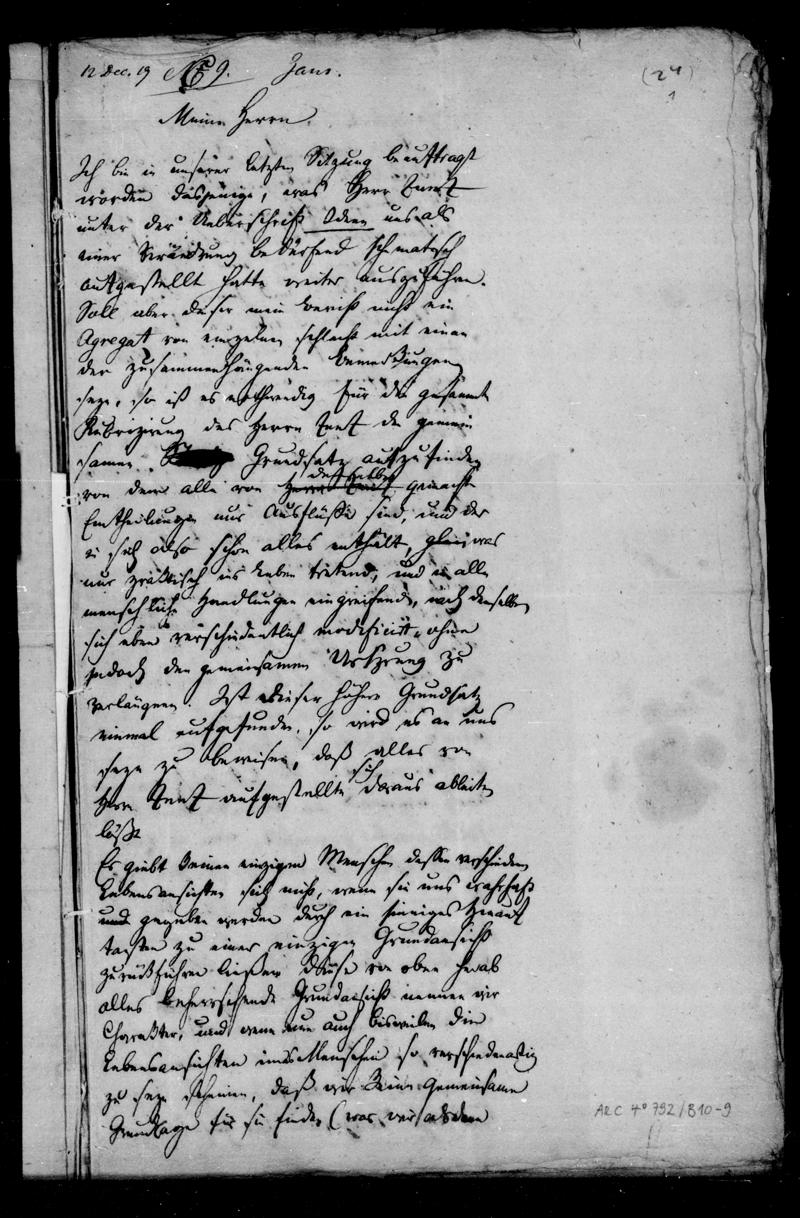 12 Dec. 19 No 9. Gans.
(24)
1
Meine Herrn.
Ich bin in unserer letzten Sitzung beauftragt
worden dasjenige, was Herr Zunz
unter der Ueberschrift Ideen uns als
einer Verändrung bedürfend schematisch
aufgestellt hatte weiter auszuführen.
Soll aber dieser mein nicht ein
Agregat von einzelnen schlecht mit einan
der zusammenhängenden Bemerkungen
seyn, so ist es nothwendig für die gesammte
Rubrizirung des Herrn Zunz den gemein
samen Grundsatz aufzufinden
von dem alle von demselben gemachte
Eintheilungen nur Ausflüsse sind, und der
in sich also schon alles enthält, was
nur praktisch ins Leben tretend, und in alle
menschliche Handlungen eingreifend, nach denselben
sich eben verschiedentlich modificirt, ohne
jedoch den gemeinsamen Ursprung zu
verläugnen. Ist dieser höhere Grundsatz
einmal aufgefunden, so wird es an uns
seyn zu beweisen, daß alles von
Herrn Zunz aufgestellte sich daraus ableiten
läßt
Es giebt keinen einzigen Menschen dessen verschiedene
Lebensansichten sich nicht, wenn sie uns wahrhaft
und gegeben werden durch ein sinniges
tasten zu einer einzigen Grundansicht
zurückführen ließen. Diese von oben herab
alles beherrschende Grundansicht nennen wir
Charakter, und wenn nun auch bisweilen die
Lebensansichten eines Menschen so verschiedenartig
zu seyn scheinen, daß wir keine gemeinsame
Grundlage für sie finden (was wir alsdann
ARC 4° 792/B10-9